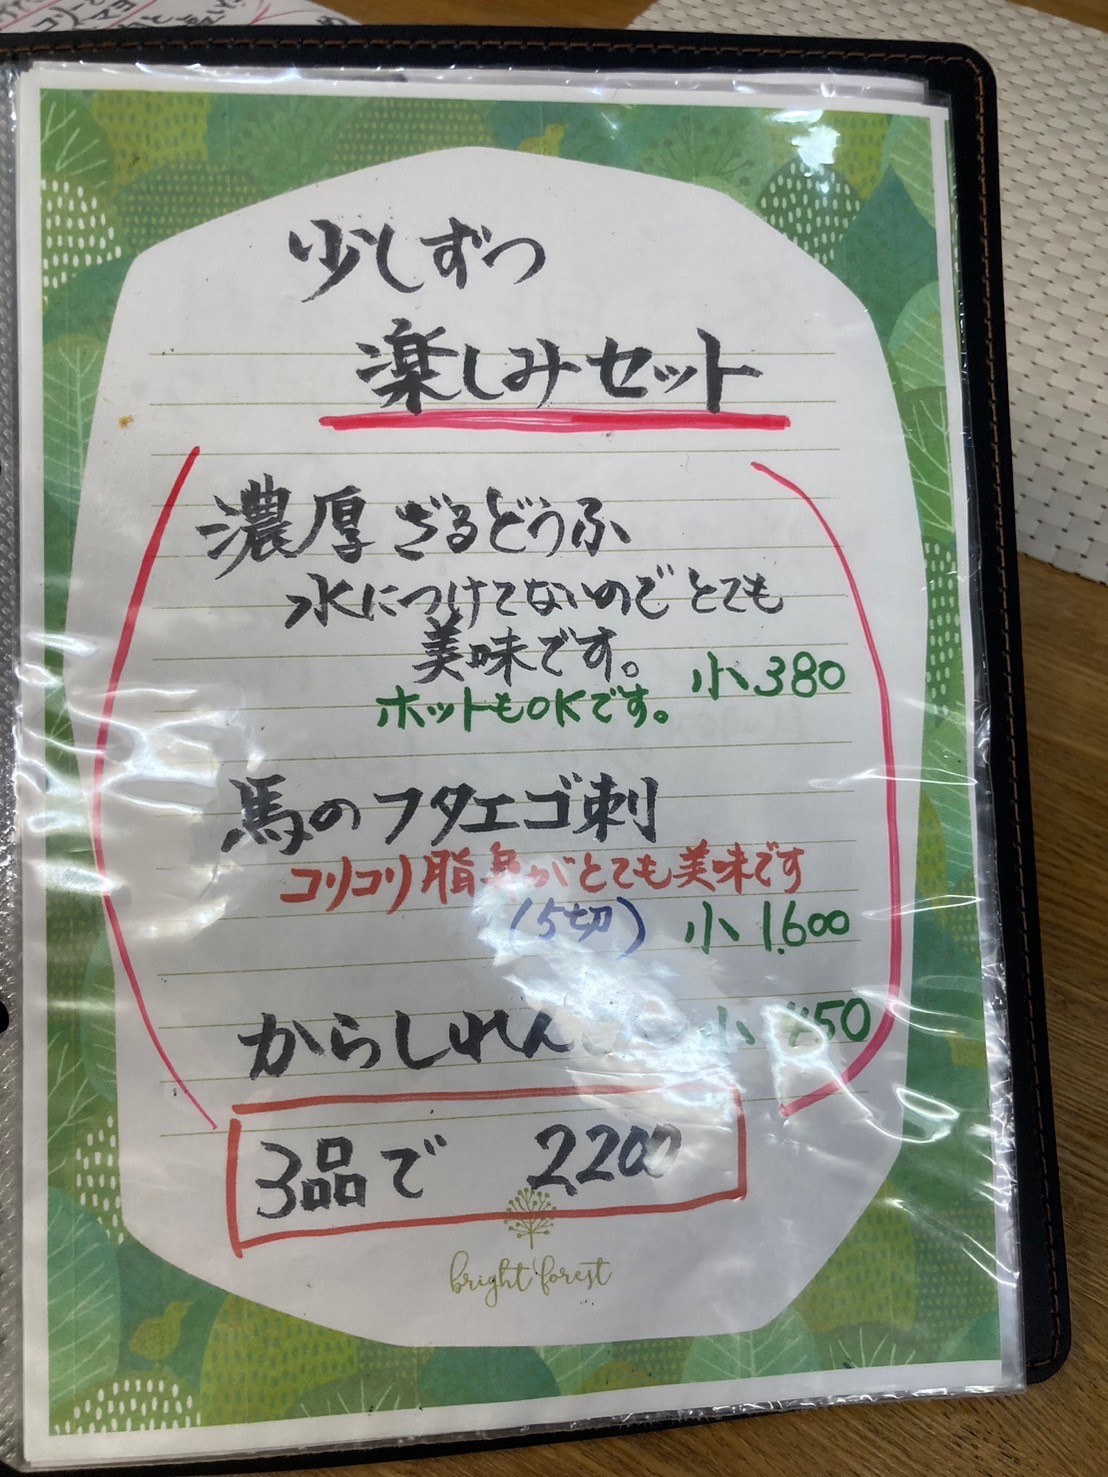 少しずつ
楽しみセット
濃厚 ざるどうふ
水につけてないので とても
美味です。
小 380
ホットもOKです。
馬のフタエゴ刺
コリコリ脂身がとても美味です
(5切) 小 1.600
からしれん 小 450
3品で 2200
bright forest